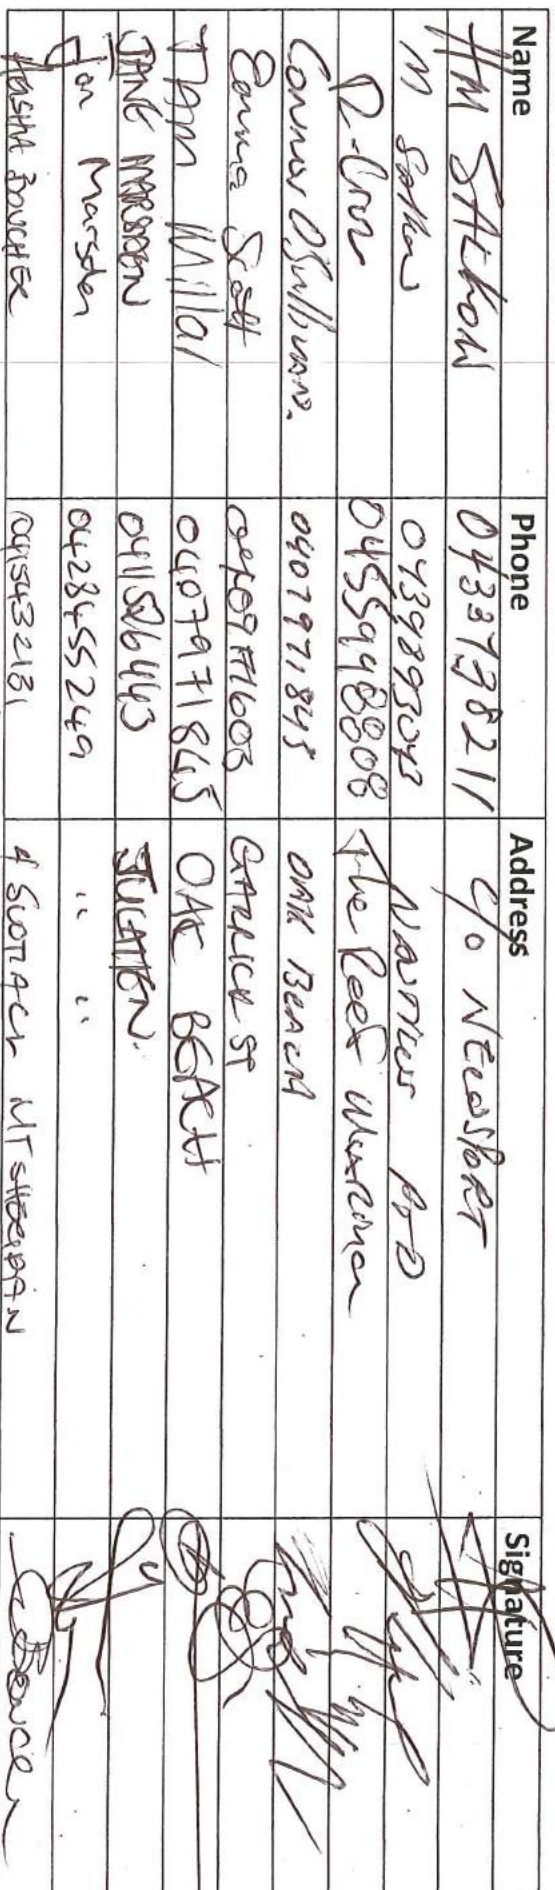 Name Phone Address Signature
HM SALKOW 0433798211 C/O NEWSPORT
M 0439893043 Nautilus P.D
R-Cruz 0455948808 The Reef Marina
Connor OSullivan. 0407971845 OAK BEACH
Emma Scott GARRICK ST
Tom Millar 0407971845 OAK BEACH
JANE MARSDEN 0411586443 JULATTEN.
Jon Marsden 0428455249 " "
BOUCHER 0415432131 MT SHERIDAN